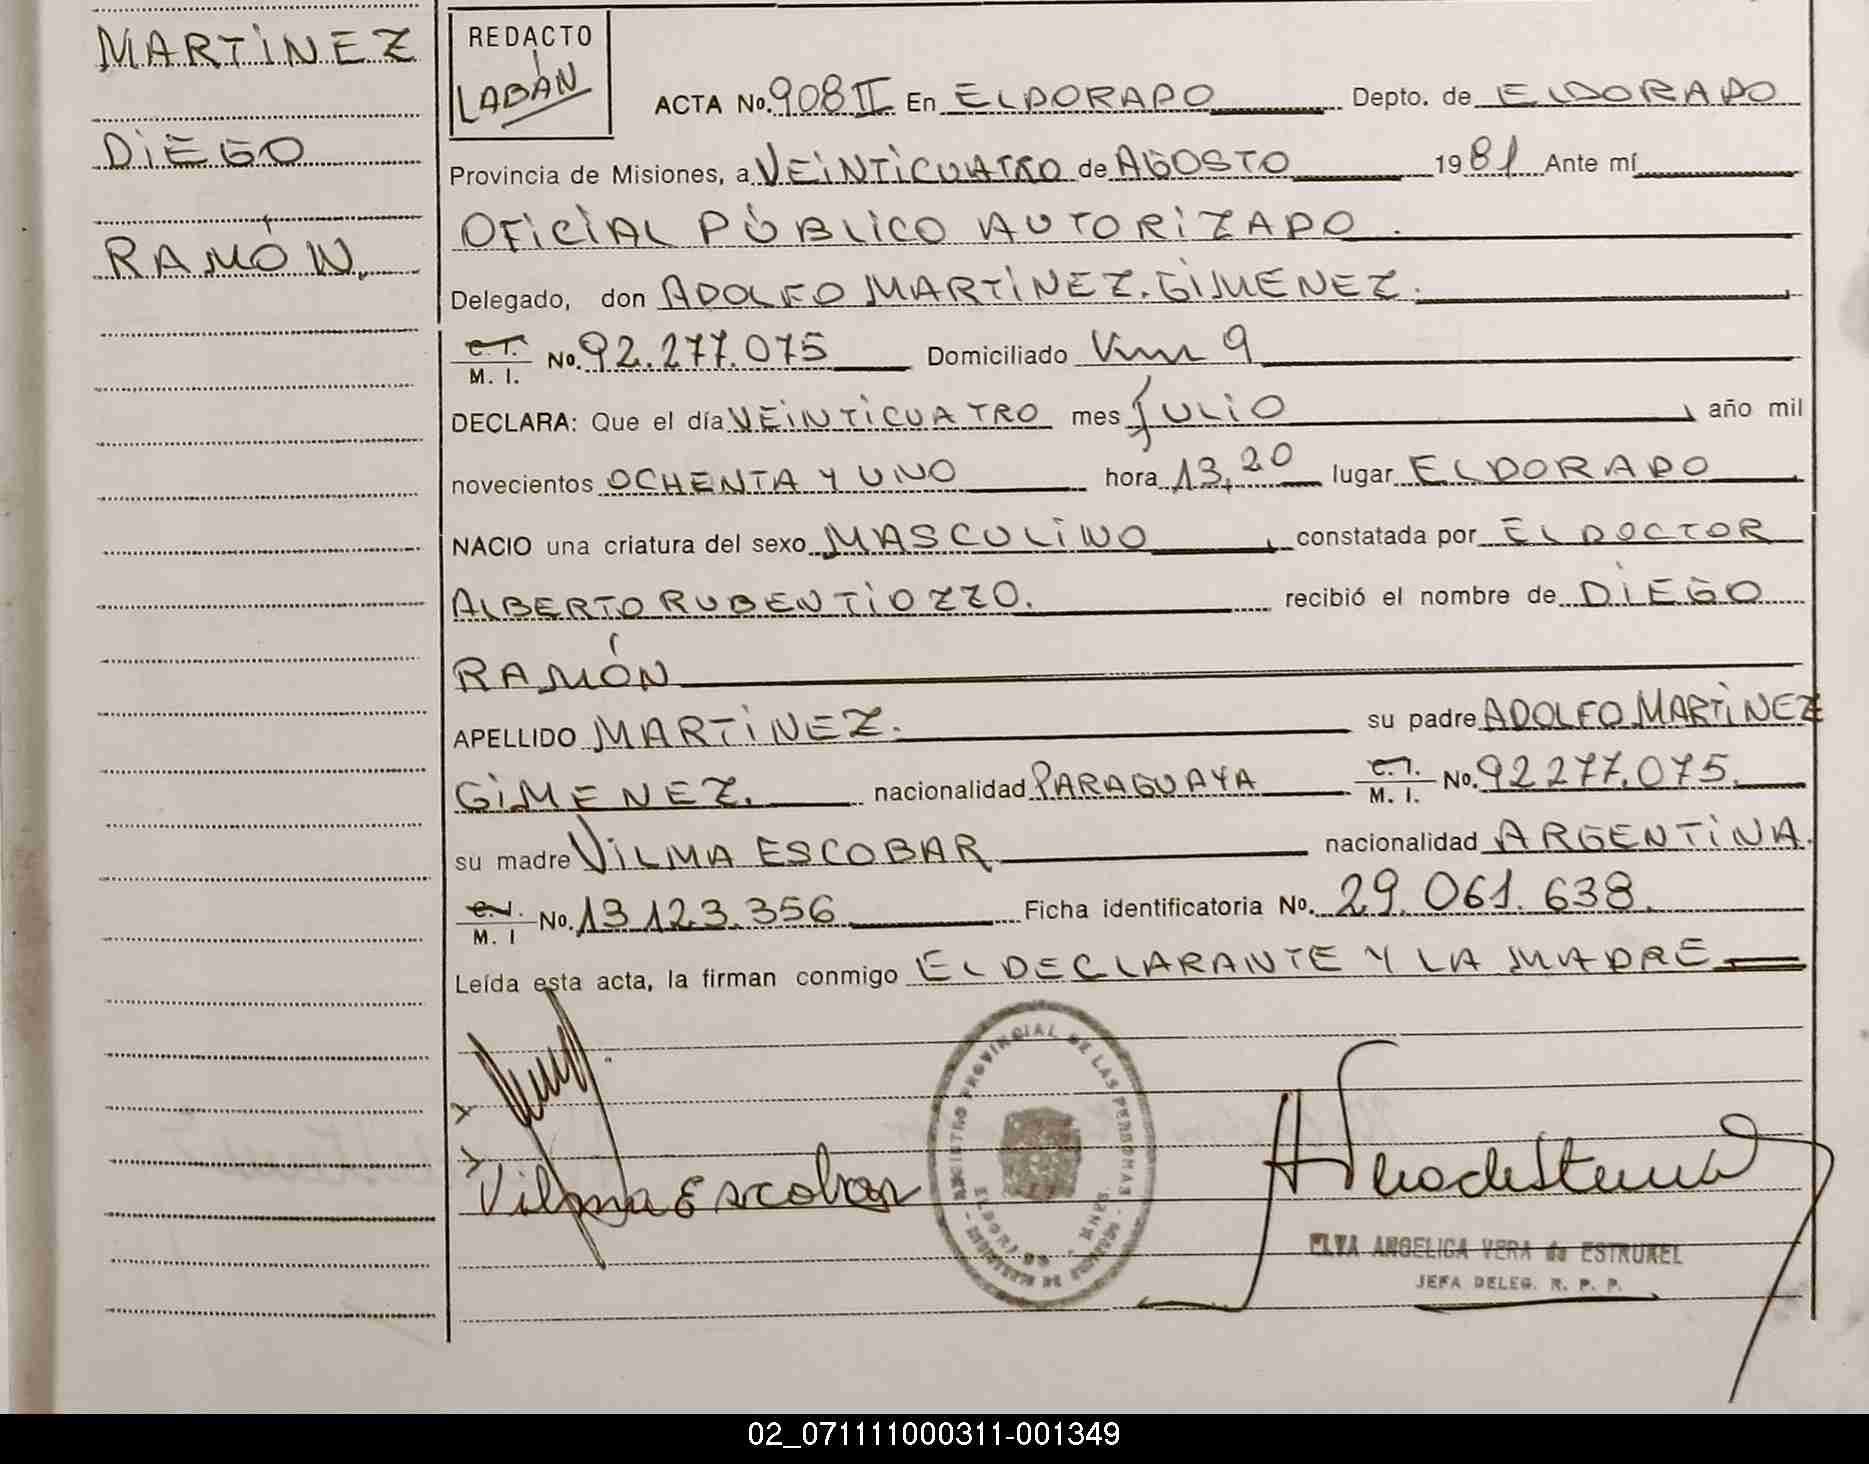 MARTINEZ
DIEGO
RAMÓN.
REDACTO
LABÁN
ACTA No. 908 II En ELDORADO Depto. de ELDORADO
Provincia de Misiones, a VEINTICUATRO de AGOSTO 1981 Ante mí
OFICIAL PÚBLICO AUTORIZADO.
Delegado, don ADOLFO MARTINEZ. GIMENEZ.
C.I. M. I. No. 92.277.075 Domiciliado Km 9
DECLARA: Que el día VEINTICUATRO mes JULIO año mil
novecientos OCHENTA Y UNO hora 13,20 lugar ELDORADO
NACIO una criatura del sexo MASCULINO constatada por EL DOCTOR
ALBERTO RUBEN TIOZZO. recibió el nombre de DIEGO
RAMÓN
APELLIDO MARTINEZ. su padre ADOLFO MARTINEZ
GIMENEZ. nacionalidad PARAGUAYA C.I. M. I. No. 92 277.075.
su madre VILMA ESCOBAR nacionalidad ARGENTINA.
C.I. M. I No. 13 123.356 Ficha identificatoria No. 29.061.638.
Leída esta acta, la firman conmigo EL DECLARANTE Y LA MADRE
Vilma Escobar
REGISTRO PROVINCIAL DE LAS PERSONAS
ELDORADO - MNES.
ELVA ANGELICA VERA de ESTRUKEL
JEFA DELEG. R. P. P.
02_071111000311-001349